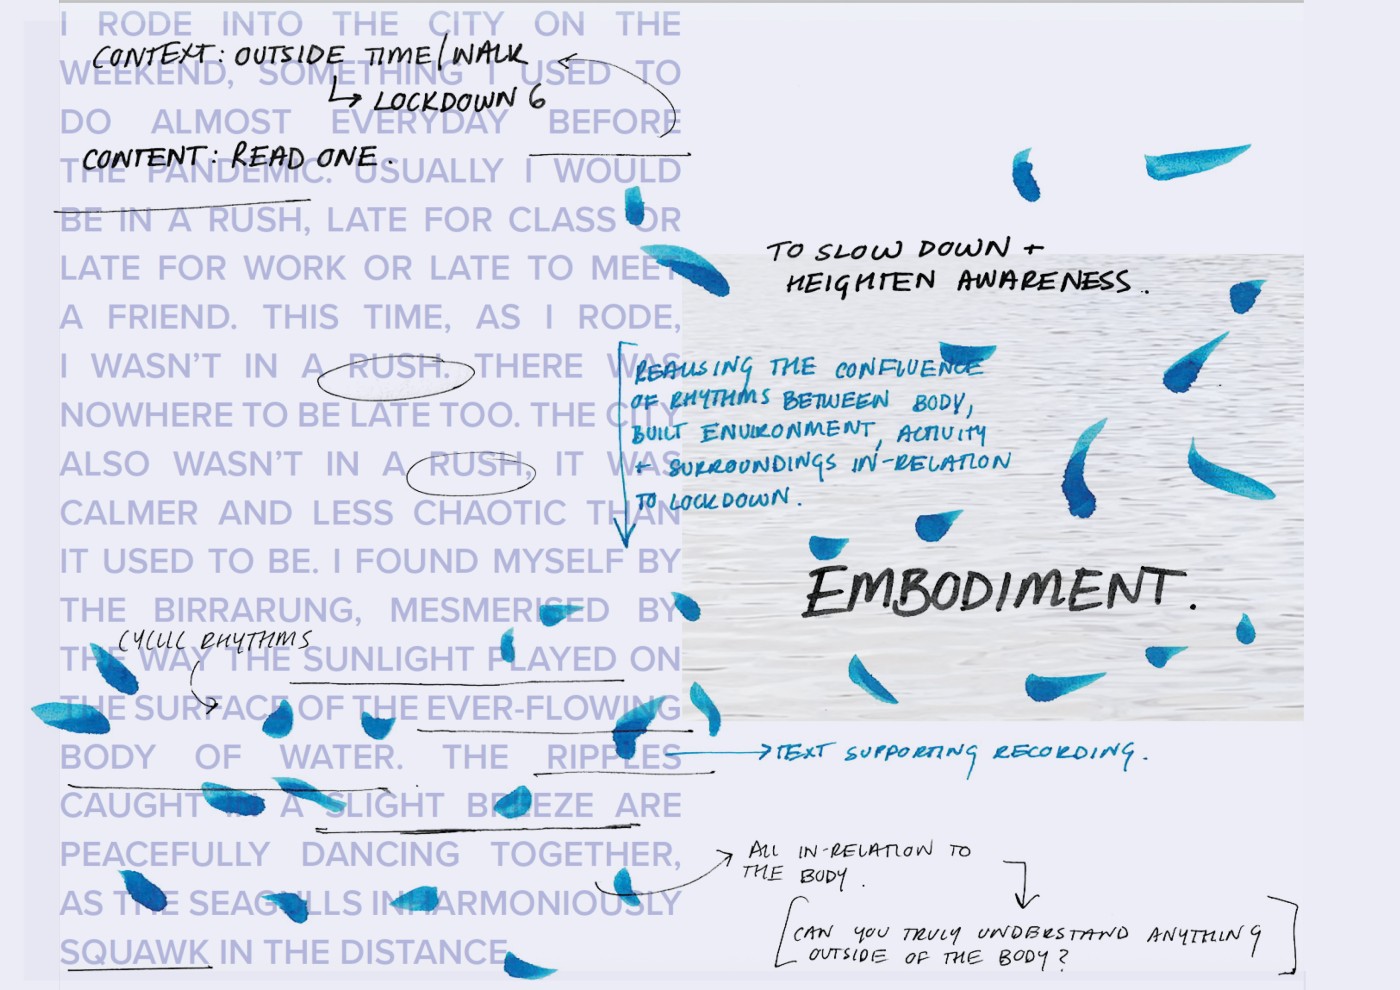 I RODE INTO THE CITY ON THE
WEEKEND, SOMETHING I USED TO
DO ALMOST EVERYDAY BEFORE
THE PANDEMIC. USUALLY I WOULD
BE IN A RUSH, LATE FOR CLASS OR
LATE FOR WORK OR LATE TO MEET
A FRIEND. THIS TIME, AS I RODE,
I WASN'T IN A RUSH. THERE WAS
NOWHERE TO BE LATE TOO. THE CITY
ALSO WASN'T IN A RUSH, IT WAS
CALMER AND LESS CHAOTIC THAN
IT USED TO BE. I FOUND MYSELF BY
THE BIRRARUNG, MESMERISED BY
THE WAY THE SUNLIGHT PLAYED ON
THE SURFACE OF THE EVER-FLOWING
BODY OF WATER. THE RIPPLES
CAUGHT IN A SLIGHT BREEZE ARE
PEACEFULLY DANCING TOGETHER,
AS THE SEAGULLS INHARMONIOUSLY
SQUAWK IN THE DISTANCE
CONTEXT: OUTSIDE TIME/WALK
↳ LOCKDOWN 6
CONTENT: READ ONE.
TO SLOW DOWN +
HEIGHTEN AWARENESS.
REALISING THE CONFLUENCE
OF RHYTHMS BETWEEN BODY,
BUILT ENVIRONMENT, ACTIVITY
+ SURROUNDINGS IN-RELATION
TO LOCKDOWN.
EMBODIMENT.
CYCLIC RHYTHMS
TEXT SUPPORTING RECORDING.
ALL IN-RELATION TO
THE BODY.
[CAN YOU TRULY UNDERSTAND ANYTHING
OUTSIDE OF THE BODY?]